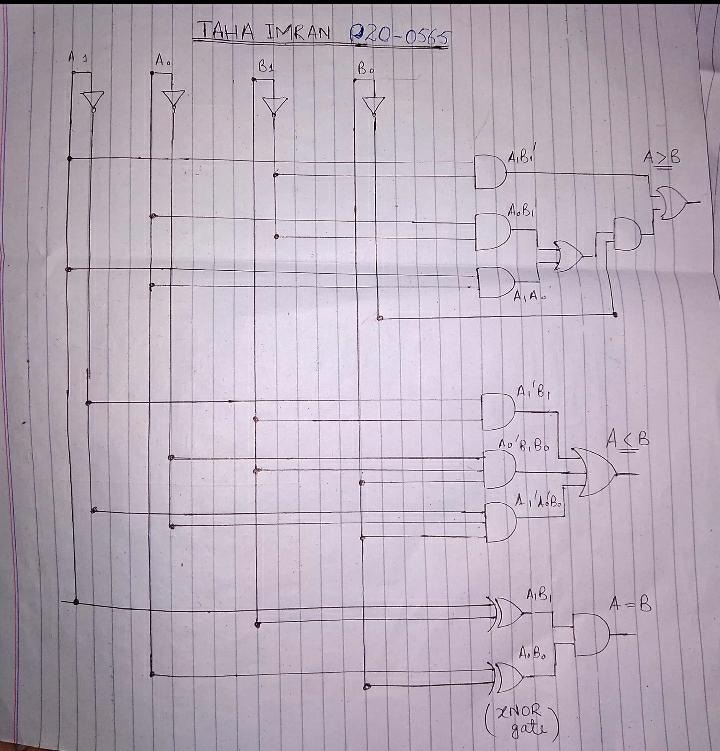 TAHA IMRAN P20-0565
A1 A0 B1 B0
A1B1' A>B
A0B1
A1A0
A1'B1
A0'B1B0 A<B
A1'A0'B0
A1B1 A=B
A0B0
(XNOR
gate)